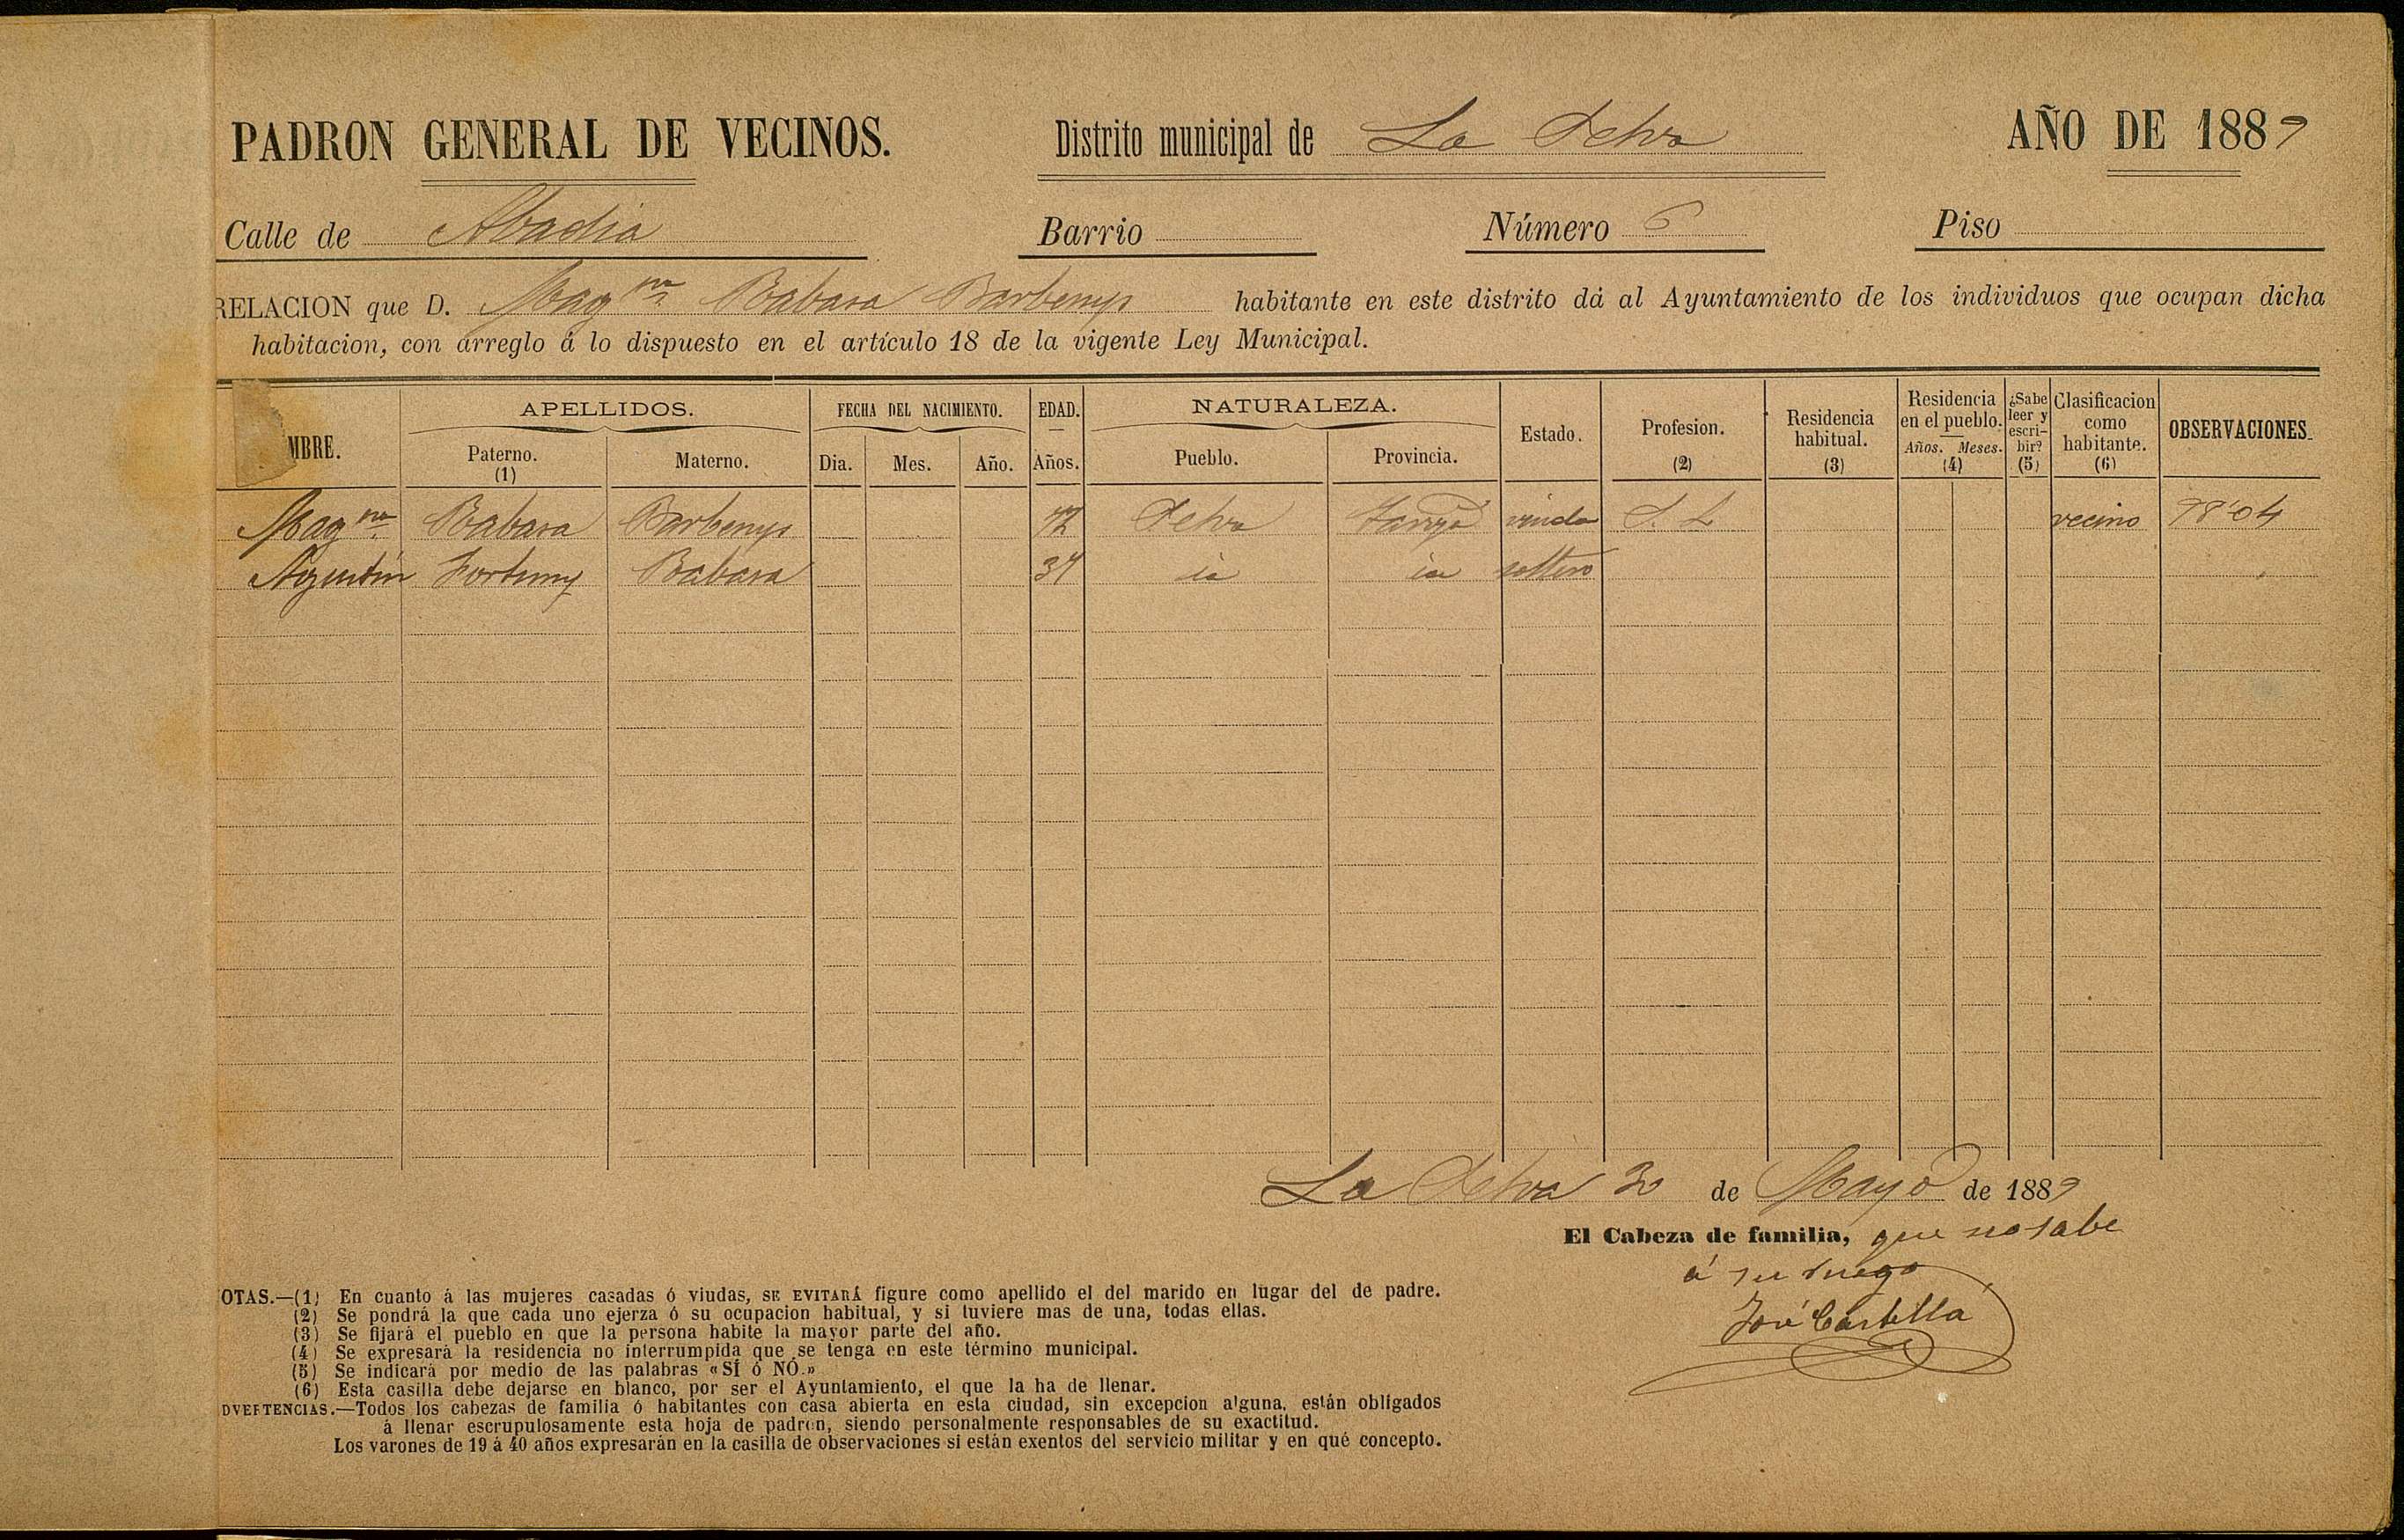 PADRON GENERAL DE VECINOS. Distrito municipal de La Selva AÑO DE 1889
Calle de Abadia Barrio Número 6 Piso
RELACION que D. Magna. Babara Barbenys habitante en este distrito dá al Ayuntamiento de los individuos que ocupan dicha
habitacion, con arreglo á lo dispuesto en el artículo 18 de la vigente Ley Municipal.
MBRE. APELLIDOS. FECHA DEL NACIMIENTO. EDAD. NATURALEZA. Estado. Profesion. (2) Residencia habitual. (3) Residencia en el pueblo. ¿Sabe leer y escribir? (5) Clasificacion como habitante. (6) OBSERVACIONES.
Paterno. (1) Materno. Dia. Mes. Año. Años. Pueblo. Provincia. Años. Meses. (4)
Magna. Babara Barbenys 72 Selva viuda S. L vecino 78'04
Agustin Fortuny Babara id id soltero
La Selva 30 de Mayo de 1889
El Cabeza de familia, que no sabe
á su ruego
José Castella
OTAS.—(1) En cuanto á las mujeres casadas ó viudas, SE EVITARÁ figure como apellido el del marido en lugar del de padre.
(2) Se pondrá la que cada uno ejerza ó su ocupacion habitual, y si tuviere mas de una, todas ellas.
(3) Se fijará el pueblo en que la persona habite la mayor parte del año.
(4) Se expresará la residencia no interrumpida que se tenga en este término municipal.
(5) Se indicará por medio de las palabras «SÍ ó NÓ.»
(6) Esta casilla debe dejarse en blanco, por ser el Ayuntamiento, el que la ha de llenar.
DVERTENCIAS.—Todos los cabezas de familia ó habitantes con casa abierta en esta ciudad, sin excepcion alguna, están obligados
á llenar escrupulosamente esta hoja de padron, siendo personalmente responsables de su exactitud.
Los varones de 19 á 40 años expresarán en la casilla de observaciones si están exentos del servicio militar y en qué concepto.